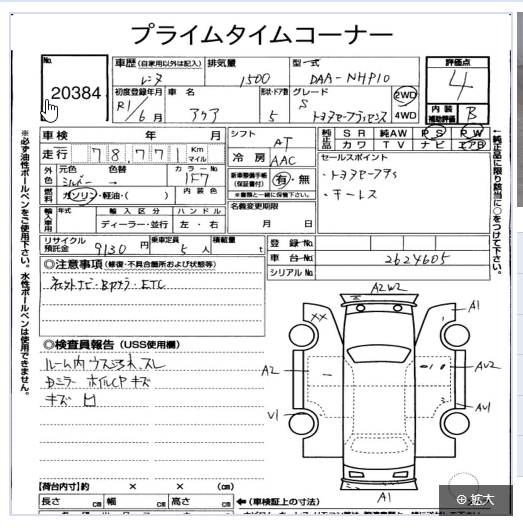 プライムタイムコーナー
No.
20384
車歴 (自家用以外は記入)
レンタ
排気量
1500
型一式
DAA-NHP10
評価点
4
初度登録年月
R1/6月
車名
アクア
形状・ドア数
5
グレード
S
トヨタセーフティセンス
2WD
4WD
内装
補助評価
B
車検 年 月
走行 78,771 Km マイル
シフト
AT
冷房
AAC
純正品 SR 純AW PS PW
カワ TV ナビ エアB
外色 元色 色替 カラーNo.
シルバー → 1F7
燃料 ガソリン・軽油・( ) 内装色
新車整備手帳
(保証書付) 有・無
※書類と一緒に保管下さい。
名義変更期限
月 日
セールスポイント
・トヨタセーフティS
・キーレス
輸入車用 年式 輸入区分 ハンドル
ディーラー・並行 左・右
リサイクル預託金 9130円
乗車定員 5人
積載量 t
登録No.
車台No. 2624605
シリアルNo.
※必ず油性ボールペンをご使用下さい。水性ボールペンは使用できません。
←純正品に限り該当に○をつけて下さい。
◎注意事項 (修復・不具合箇所および状態等)
ネットナビ・Bカメラ・ETC
◎検査員報告 (USS使用欄)
ルーム内ウス汚れ、スレ
Dミラー ホイルCPキズ
キズ 凹
A2W2
XX
A1
A2
AU2
AU1
V1
A1
【荷台内寸】約 × × (cm)
長さ cm 幅 cm 高さ cm ←(車検証上の寸法)
拡大